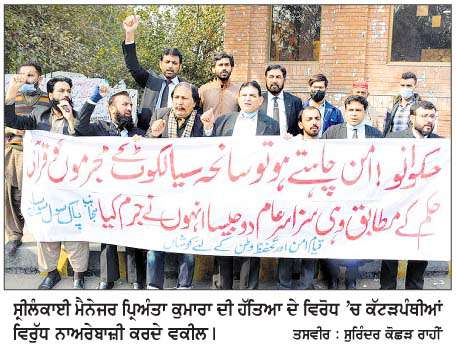 حکمرانو! امن چاہتے ہو تو سانحہ سیالکوٹ کے مجرموں کو قرآنی
حکم کے مطابق وہی سزا سرعام دو جیسا انہوں نے جرم کیا منجانب پاک سول سوسائٹی
قیام امن اور تحفظ وطن کے لئے کوشاں
ਸ੍ਰੀਲੰਕਾਈ ਮੈਨੇਜਰ ਪ੍ਰਿਅੰਤਾ ਕੁਮਾਰਾ ਦੀ ਹੱਤਿਆ ਦੇ ਵਿਰੋਧ 'ਚ ਕੱਟੜਪੰਥੀਆਂ
ਵਿਰੁੱਧ ਨਾਅਰੇਬਾਜ਼ੀ ਕਰਦੇ ਵਕੀਲ। ਤਸਵੀਰ : ਸੁਰਿੰਦਰ ਕੋਛੜ ਰਾਹੀਂ